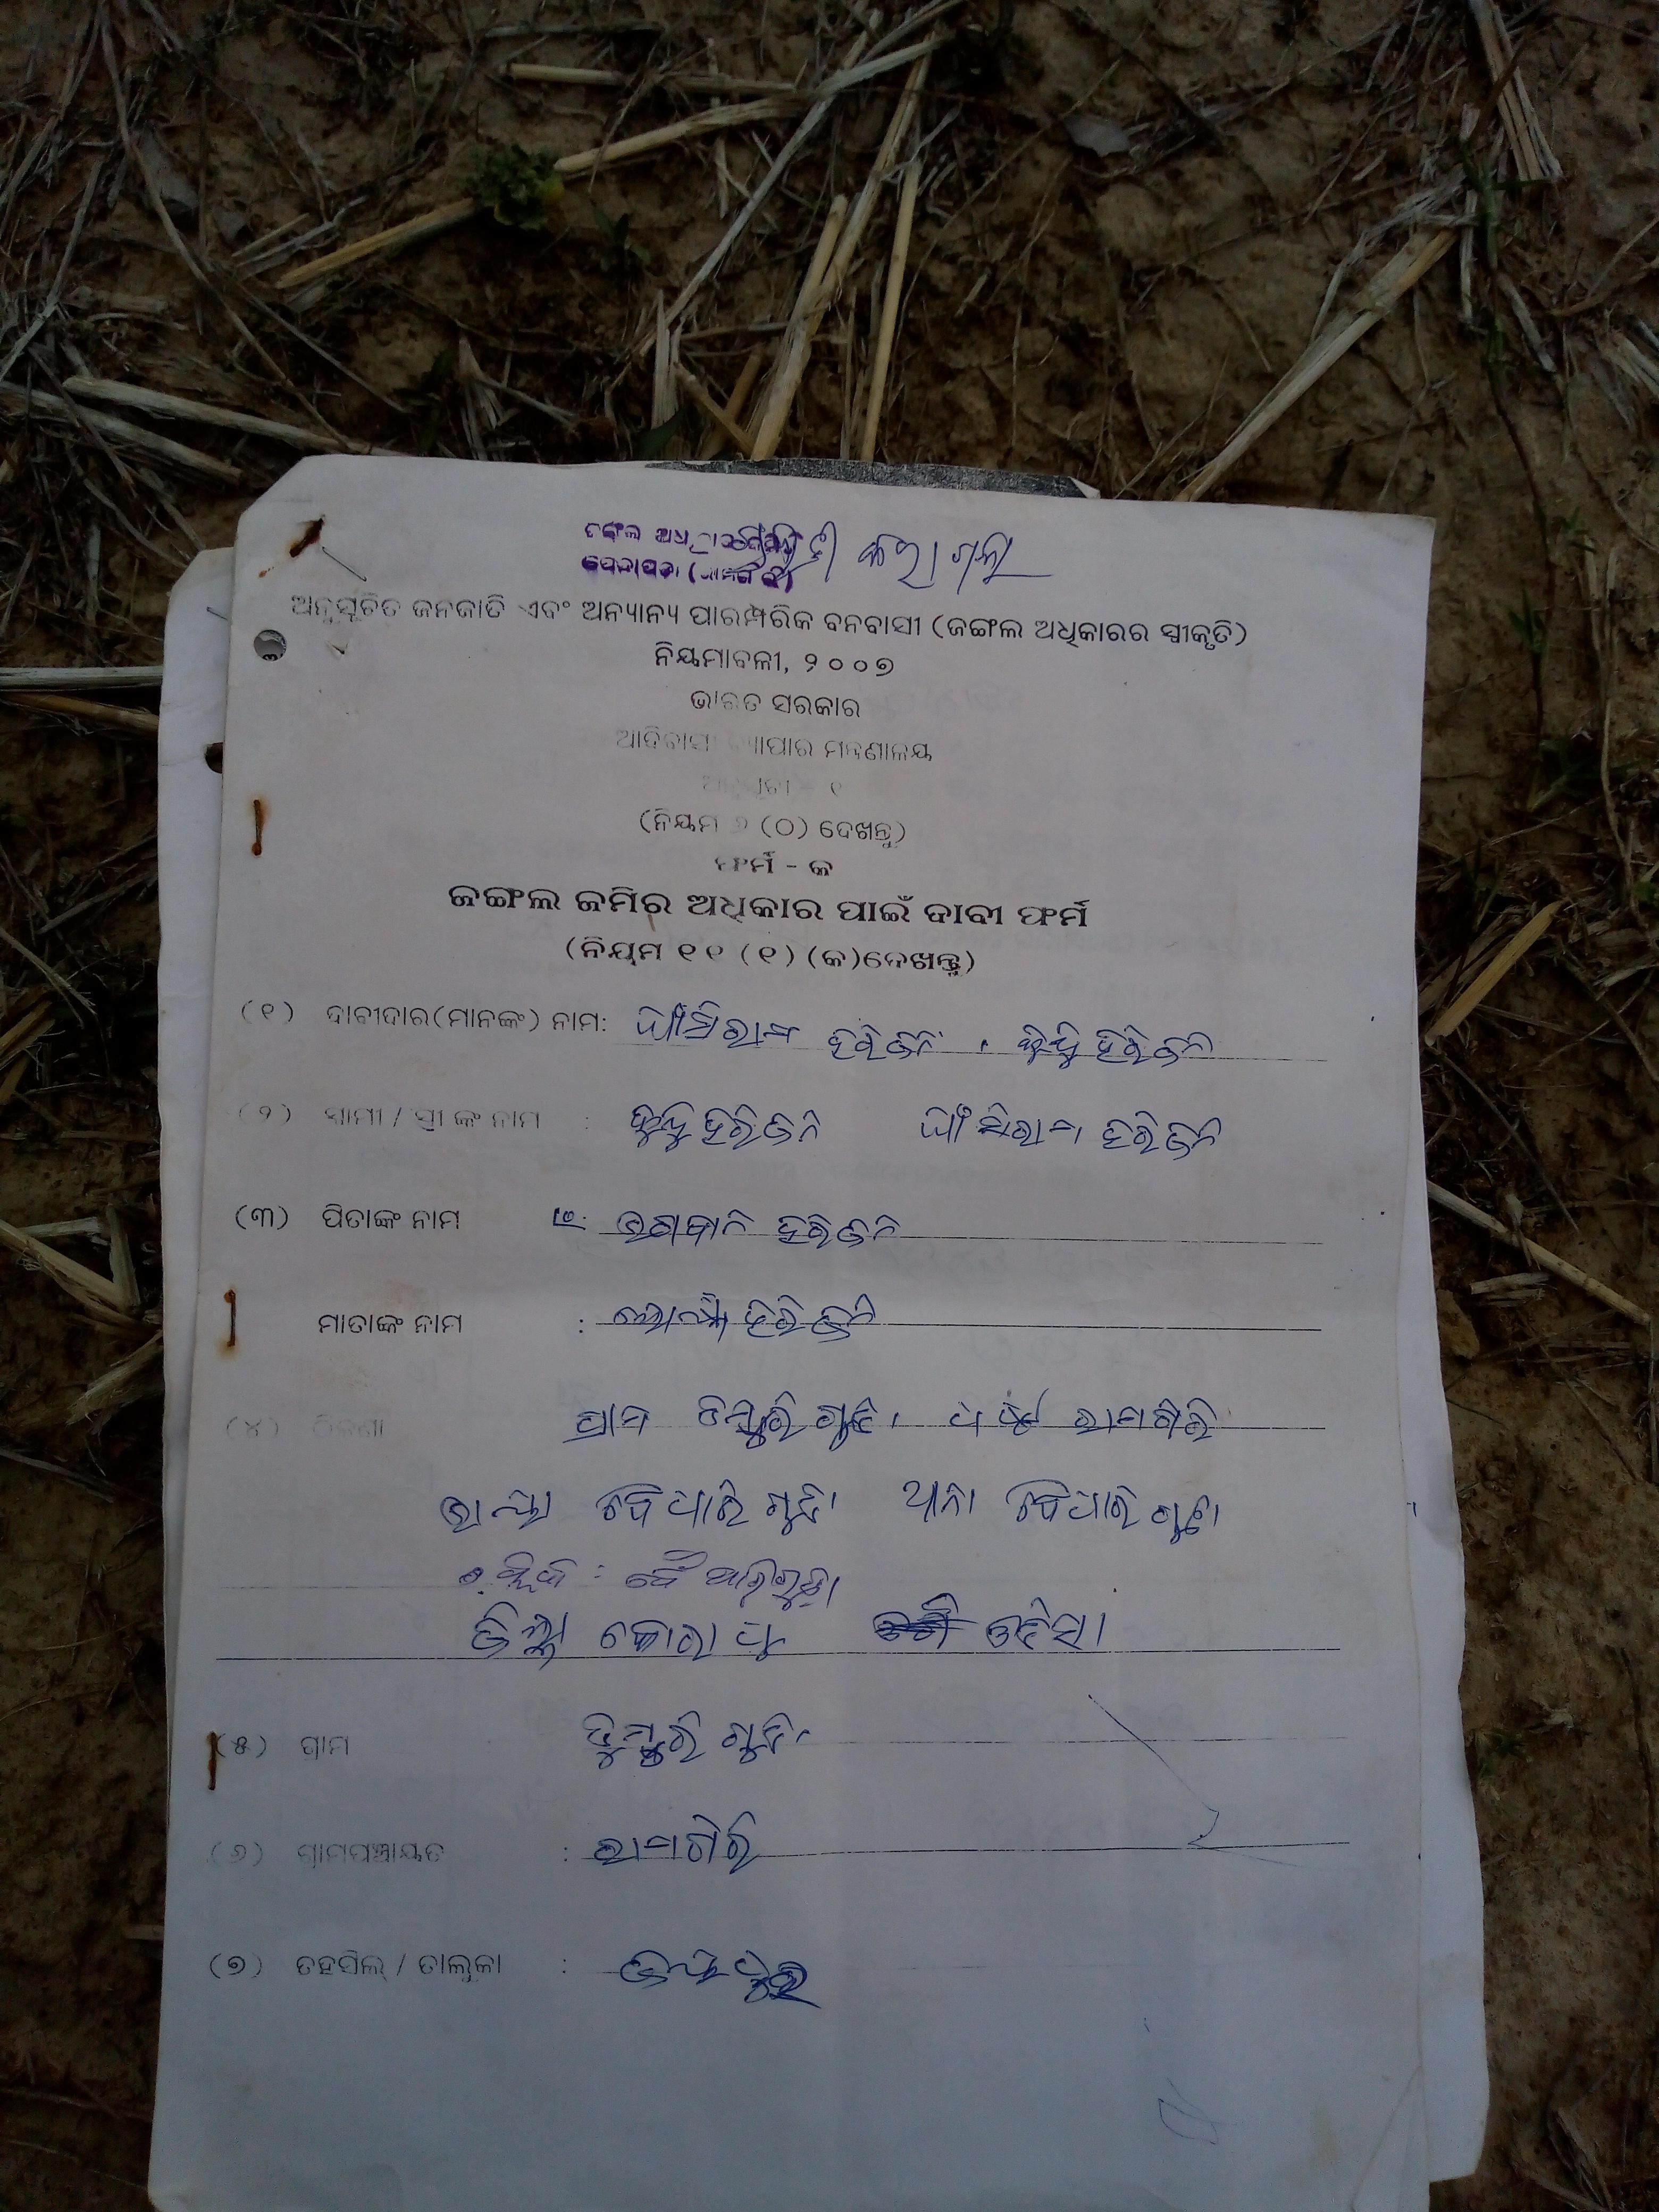 ଜଙ୍ଗଲ ଅଧିକାର କରାଗଲା
ଅନୁସୂଚିତ ଜନଜାତି ଏବଂ ଅନ୍ୟାନ୍ୟ ପାରମ୍ପରିକ ବନବାସୀ (ଜଙ୍ଗଲ ଅଧିକାରର ସ୍ୱୀକୃତି)
ନିୟମାବଳୀ, ୨୦୦୭
ଭାରତ ସରକାର
ଆଦିବାସୀ ବ୍ୟାପାର ମନ୍ତ୍ରଣାଳୟ
(ନିୟମ ୬ (ଠ) ଦେଖନ୍ତୁ)
ଫର୍ମ - କ
ଜଙ୍ଗଲ ଜମିର ଅଧିକାର ପାଇଁ ଦାବୀ ଫର୍ମ
(ନିୟମ ୧୧ (୧) (କ)ଦେଖନ୍ତୁ)
(୧) ଦାବୀଦାର(ମାନଙ୍କ) ନାମ: ଘାଁସିରାମ ହରିଜନ
(୨) ସ୍ୱାମୀ / ସ୍ତ୍ରୀ ଙ୍କ ନାମ : ହରିଜନ ଘାଁସିରାମ ହରିଜନ
(୩) ପିତାଙ୍କ ନାମ : ଭଗବାନ ହରିଜନ
ମାତାଙ୍କ ନାମ : ହରିଜନ
(୪) ଠିକଣା ଗ୍ରାମ ରାମଗିରି
ବୈପାରିଗୁଡା ଥାନା ବୈପାରିଗୁଡା
ବୈପାରିଗୁଡା
ଜିଲ୍ଲା କୋରାପୁଟ ଓଡିସା
(୫) ଗ୍ରାମ ଡୁମ୍ବରିଗୁଡା
(୬) ଗ୍ରାମପଞ୍ଚାୟତ : ରାମଗିରି
(୭) ତହସିଲ୍ / ତାଲୁକା : ଜୟପୁର